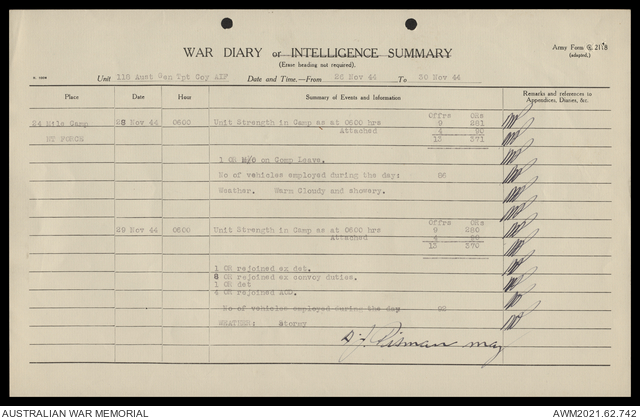 WAR DIARY or INTELLIGENCE SUMMARY
(Erase heading not required).
Army Form C. 2118
(adapted.)
Unit 118 Aust Gen Tpt Coy AIF Date and Time.—From 28 Nov 44 To 30 Nov 44
Place Date Hour Summary of Events and Information Remarks and references to
Appendices, Diaries, &c.
Offrs ORs
24 Mile Camp 28 Nov 44 0600 Unit Strength in Camp as at 0600 hrs 9 281
NT FORCE Attached 4 90
13 371
1 OR on Comp Leave.
No of vehicles employed during the day:
Weather. Warm Cloudy and showery.
Offrs ORs
29 Nov 44 0600 Unit Strength in Camp as at 0600 hrs 9 280
Attached 4 90
13 370
1 OR rejoined ex det.
OR rejoined ex convoy duties.
1 OR det
4 OR rejoined AOD.
No of vehicles employed during the day
WHATEER: Stormy
Maj
AUSTRALIAN WAR MEMORIAL AWM2021.62.742